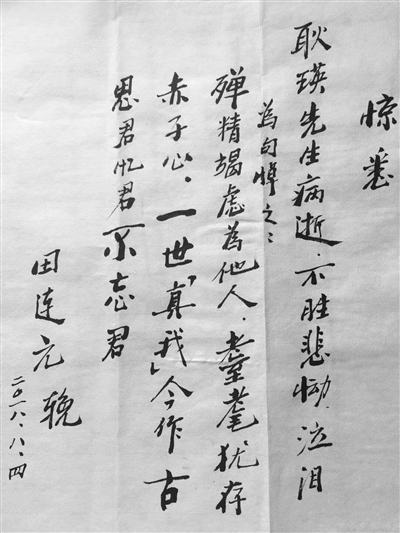 惊悉
耿瑛先生病逝.不胜悲恸.泣泪
為句悼之:
殚精竭虑為他人.耋耄犹存
赤子心.一世「真我」今作古
思君忆君不忘君
田连元 輓
二〇一八.八.四